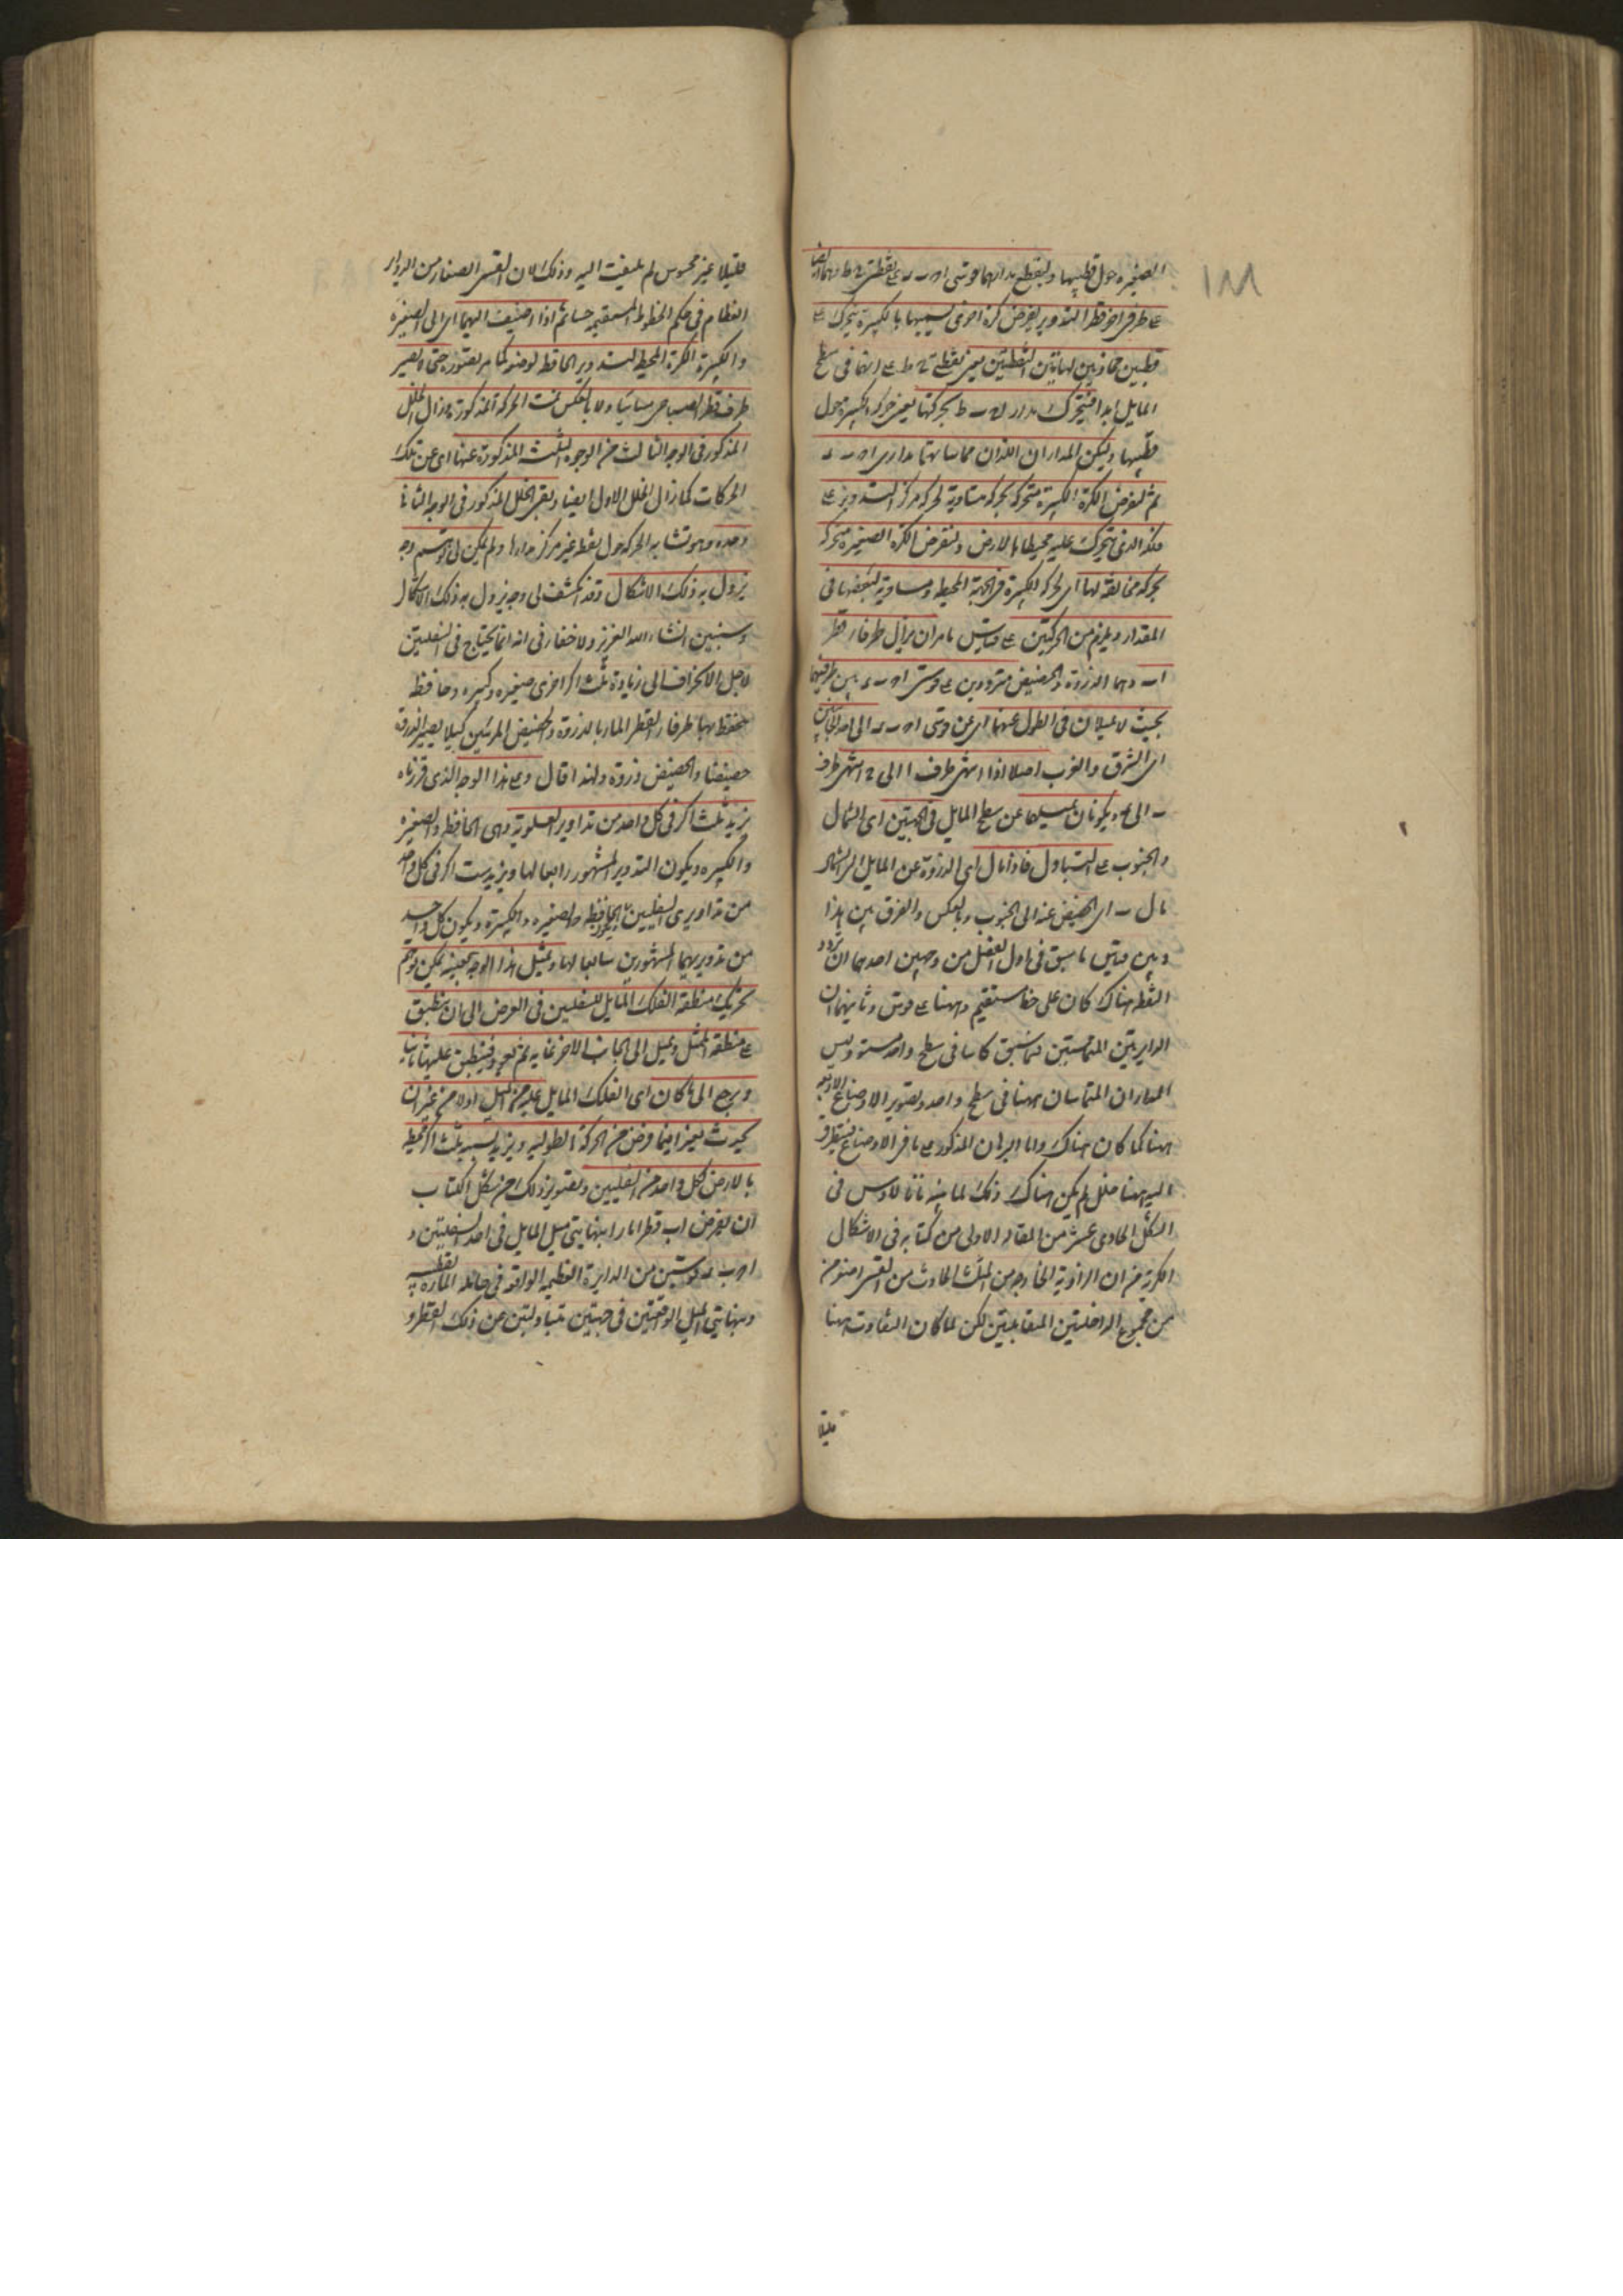 ١٨٨
الصغيرة حول قطبيها وليقطع مداراهما قوسى اه ب على نقطتى ح ط وهما ايضا
على طرفى اخر قطر التدوير يفرض كرة اخرى نسميها بالكبيرة يتحرك على
قطبين محاذيين لهاتين النقطتين يعنى نقطتى ح ط على انهما فى سطح
المايل ابدا فيتحرك مدار ط بحركتها يعنى حركة الكبيرة حول
قطبيها وليكن المداران اللذان مماساتهما مدارى
ثم لنفرض الكرة الكبيرة متحركة بحركة متساوية لحركة مركز التدوير على
فلكه الذى يتحرك عليه محيطا بالارض ولنفرض الكرة الصغيرة متحركة
بحركة مخالفة لها اى لحركة الكبيرة فى الجهة المحيط ومساوية لنصفها فى
المقدار ويلزم من الحركتين على قياس ما مر ان يزال طرفا قطر
ا ب وهما الذروة والحضيض مترددين على قوسى بين طرفيهما
بحيث لا يميلان فى الطول عنهما اى عن قوسى الى احد الجانبين
اى الشرق والغرب اصلا اذا انتهى طرف ا الى ح انتهى طرف
ب الى ويكونان ميلهما عن سطح المايل فى الجهتين اى الشمال
والجنوب على التبادل فاذا مال اى الذروة عن المايل الى الشمال
مال ب اى الحضيض عنه الى الجنوب وبالعكس والفرق بين هذا
وبين قياس ما سبق فى اول الفصل من وجهين احدهما ان تردد
النقط هناك كان على خط مستقيم وههنا على قوس وثانيهما ان
الدايرتين المتماستين فيما سبق كانتا فى سطح واحد مستو وليس
المداران المتماسان ههنا فى سطح واحد وتصوير الاوضاع الاربعة
ههنا كما كان هناك واما البرهان المذكور على باقى الاوضاع فيتطرق
اليه ههنا خلل لم يكن هناك وذلك لما بينه مانالاوس فى
الشكل الحادى عشر من المقالة الاولى من كتابه فى الاشكال
الكرية من ان الزاوية الخارجة من المثلث الحادث من القسى اصغر من
من مجموع الداخلتين المتقابلتين لكن لما كان التفاوت ههنا
قليلا
قليلا غير محسوس لم يلتفت اليه وذلك لان القسى الصغار من الدواير
العظام فى حكم الخطوط المستقيمة حسا ثم اذا اضيفت اليهما اى الى الصغيرة
والكبيرة الكرة المحيط بالتدوير الحافظة لوضعه كما مر تصوره حتى لا يصير
طرف قطر صباحى مسائيا ولا بالعكس تمت الحركة المذكورة وزال الخلل
المذكور فى الوجه الثالث من الوجوه الثلث المذكورة عنها اى عن تلك
الحركات كما زال الخلل الاول ايضا وبقى الخلل المذكور فى الوجه الثانى
وحده وهو تشابه الحركة حول نقطة غير مركز مدارها ولم يكن لى وجه
يزول به ذلك الاشكال وقد انكشف لى وجه يزول به ذلك الاشكال
وسنبين انشاء الله العزيز ولا خفاء فى انه انما يحتاج فى السفليتين
لاجل الانحراف الى زيادة ثلث اكر اخرى صغيرة وكبيرة وحافظة
يحفظ بها طرفا القطر المار بالذروة والحضيض المرئيين كيلا يصير الذروة
حضيضا والحضيض ذروة ولهذا قال وعلى هذا الوجه الذى قررناه
نزيد ثلث اكر فى كل واحد من تداوير العلوية وهى الحافظة والصغيرة
والكبيرة ويكون التدوير المشهور رابعا لها ويزيد ست اكر فى كل واحد
من تداويرى السفليين الحافظة والصغيرة والكبيرة ويكون كل واحد
من تدويريهما المشهورين سابعا لها وبمثل هذا الوجه بعينه يمكن توهم
تحريك منطقة الفلك المايل للسفليين فى العرض الى ان ينطبق
على منطقة الممثل ويميل الى الجانب الاخر غايته ثم يعود فينطبق عليها ثانيا
ويرجع الى ما كان اى الفلك المايل عليه من الميل اولا من غير ان
يحدث تغير فيما فرض من الحركة الطولية ويزيد بسببه ثلث اكر محيطة
بالارض لكل واحد من السفليين وتصوير ذلك من شكل الكتاب
ان يفرض اب قطرا مارا بنهايتى ميل المايل فى احد السفليتين و
قوسين من الدايرة العظيمة الواقعة فى حامله المارة بقطبيه
وبنهايتى الميل الواقعتين فى جهتين متبادلتين من ذلك القطر و